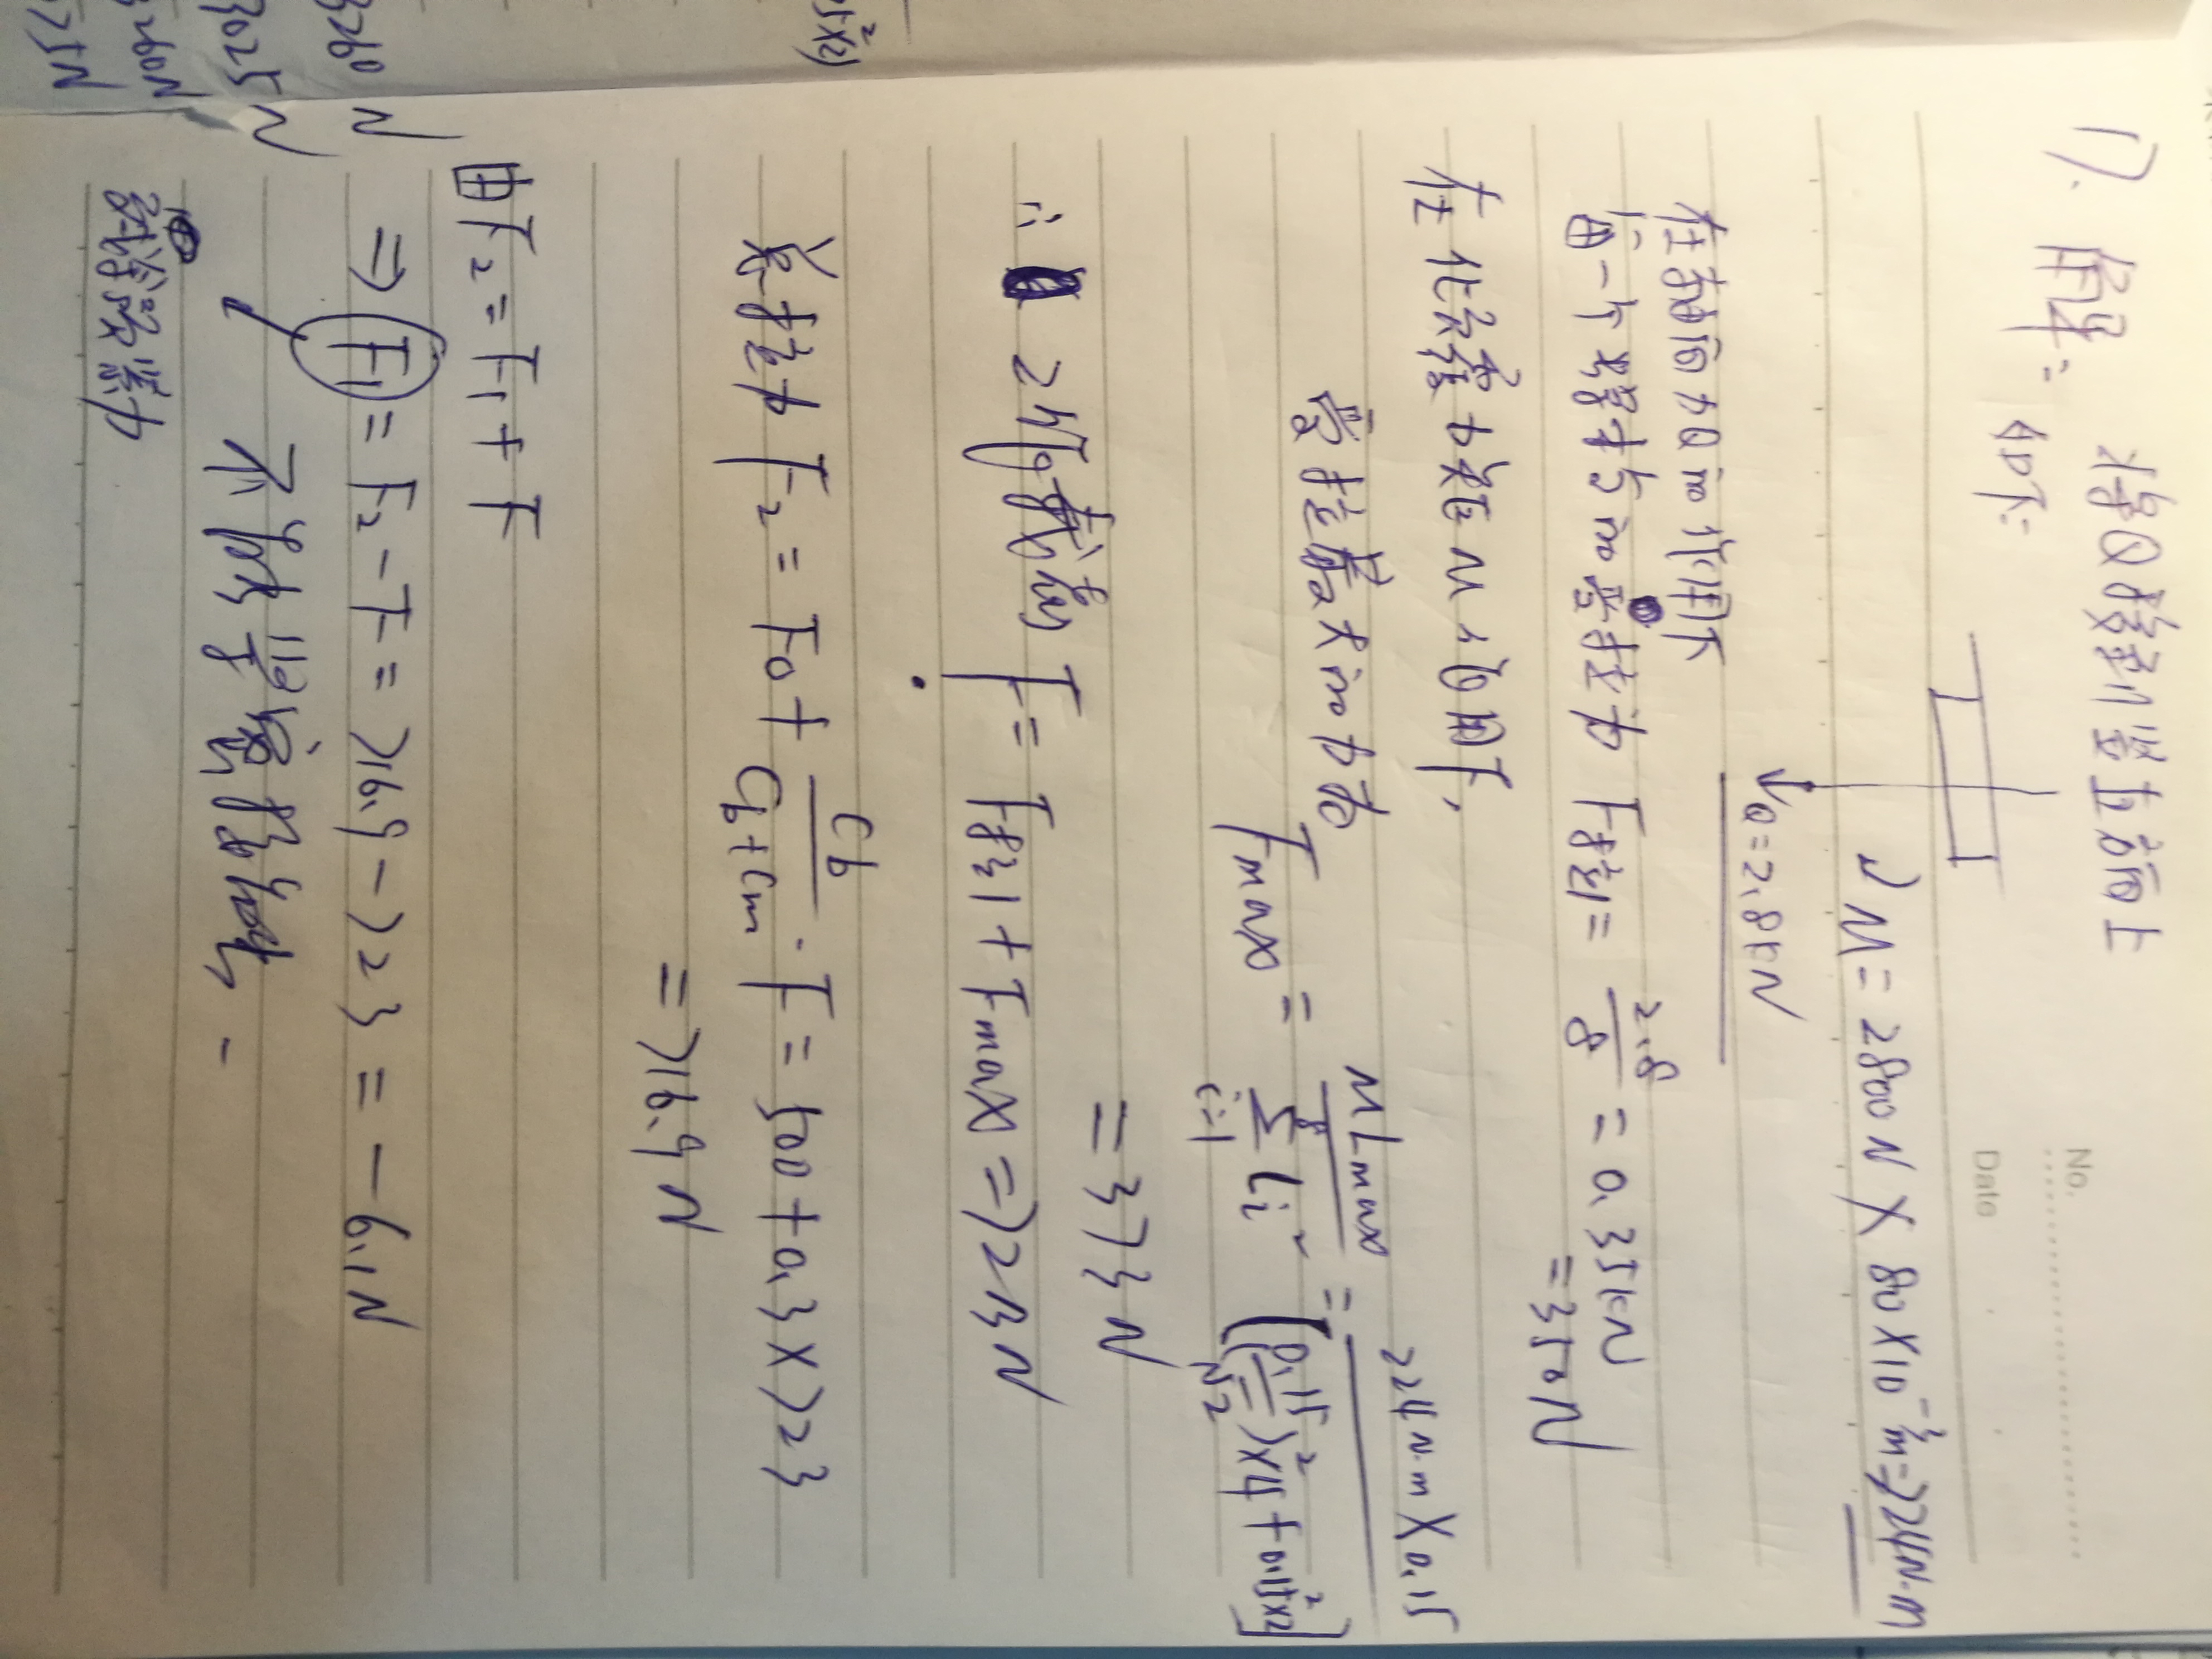 No.
Date
17. 解: 将Q移到竖直面上
如下:
M = 2800N × 80×10⁻³m = 224N·m
Q=2.8kN
在轴向力Q的作用下
每一个螺栓与的受拉力 F拉1 = 2.8/8 = 0.35kN
= 350N
在倾覆力矩M作用下,
受拉最大的力为
Fmax = MLmax / Σ(i=1, 8) Li² = 224N·m×0.15 / [(0.15/√2)²×4 + 0.15²×2]
= 373N
∴ 工作载荷 F = F拉1 + Fmax = 723N
总拉力 F₂ = F₀ + Cb/(Cb+Cm) · F = 500 + 0.3×723
= 716.9N
由F₂ = F₁ + F
⇒ F₁ = F₂ − F = 716.9 − 723 = −6.1N
残余预紧力